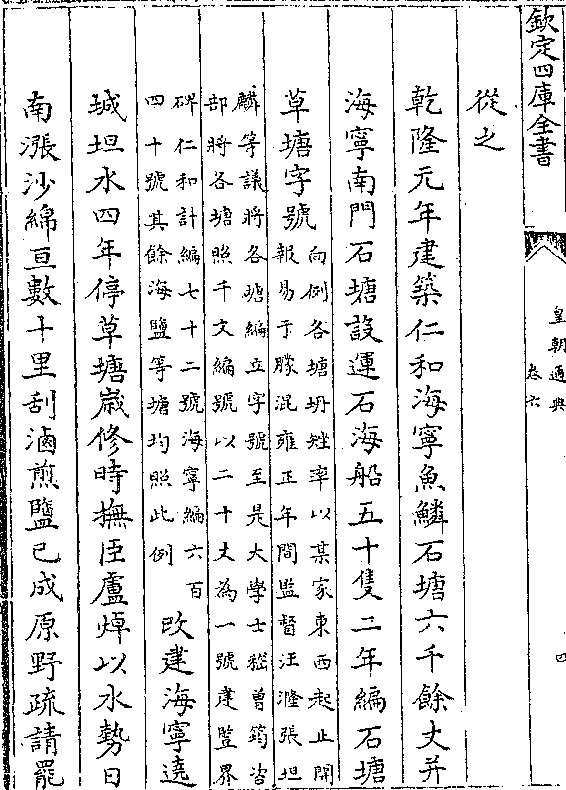 欽定四庫全書
皇朝通典
卷六
四
從之
乾隆元年建築仁和海寧魚鱗石塘六千餘丈并
海寧南門石塘設運石海船五十隻二年編石塘
草塘字號
向例各塘坍矬率以某家東西起止開
報易于朦混雍正年間監督汪漋張坦
麟等議將各塘編立字號至是大學士嵇曾筠咨
部將各塘照千文編號以二十丈為一號建豎界
碑仁和計編七十二號海寧編六百
四十號其餘海鹽等塘均照此例
改建海寧遶
城坦水四年停草塘歲修時撫臣盧焯以水勢日
南漲沙綿亘數十里刮滷煎鹽已成原野疏請罷